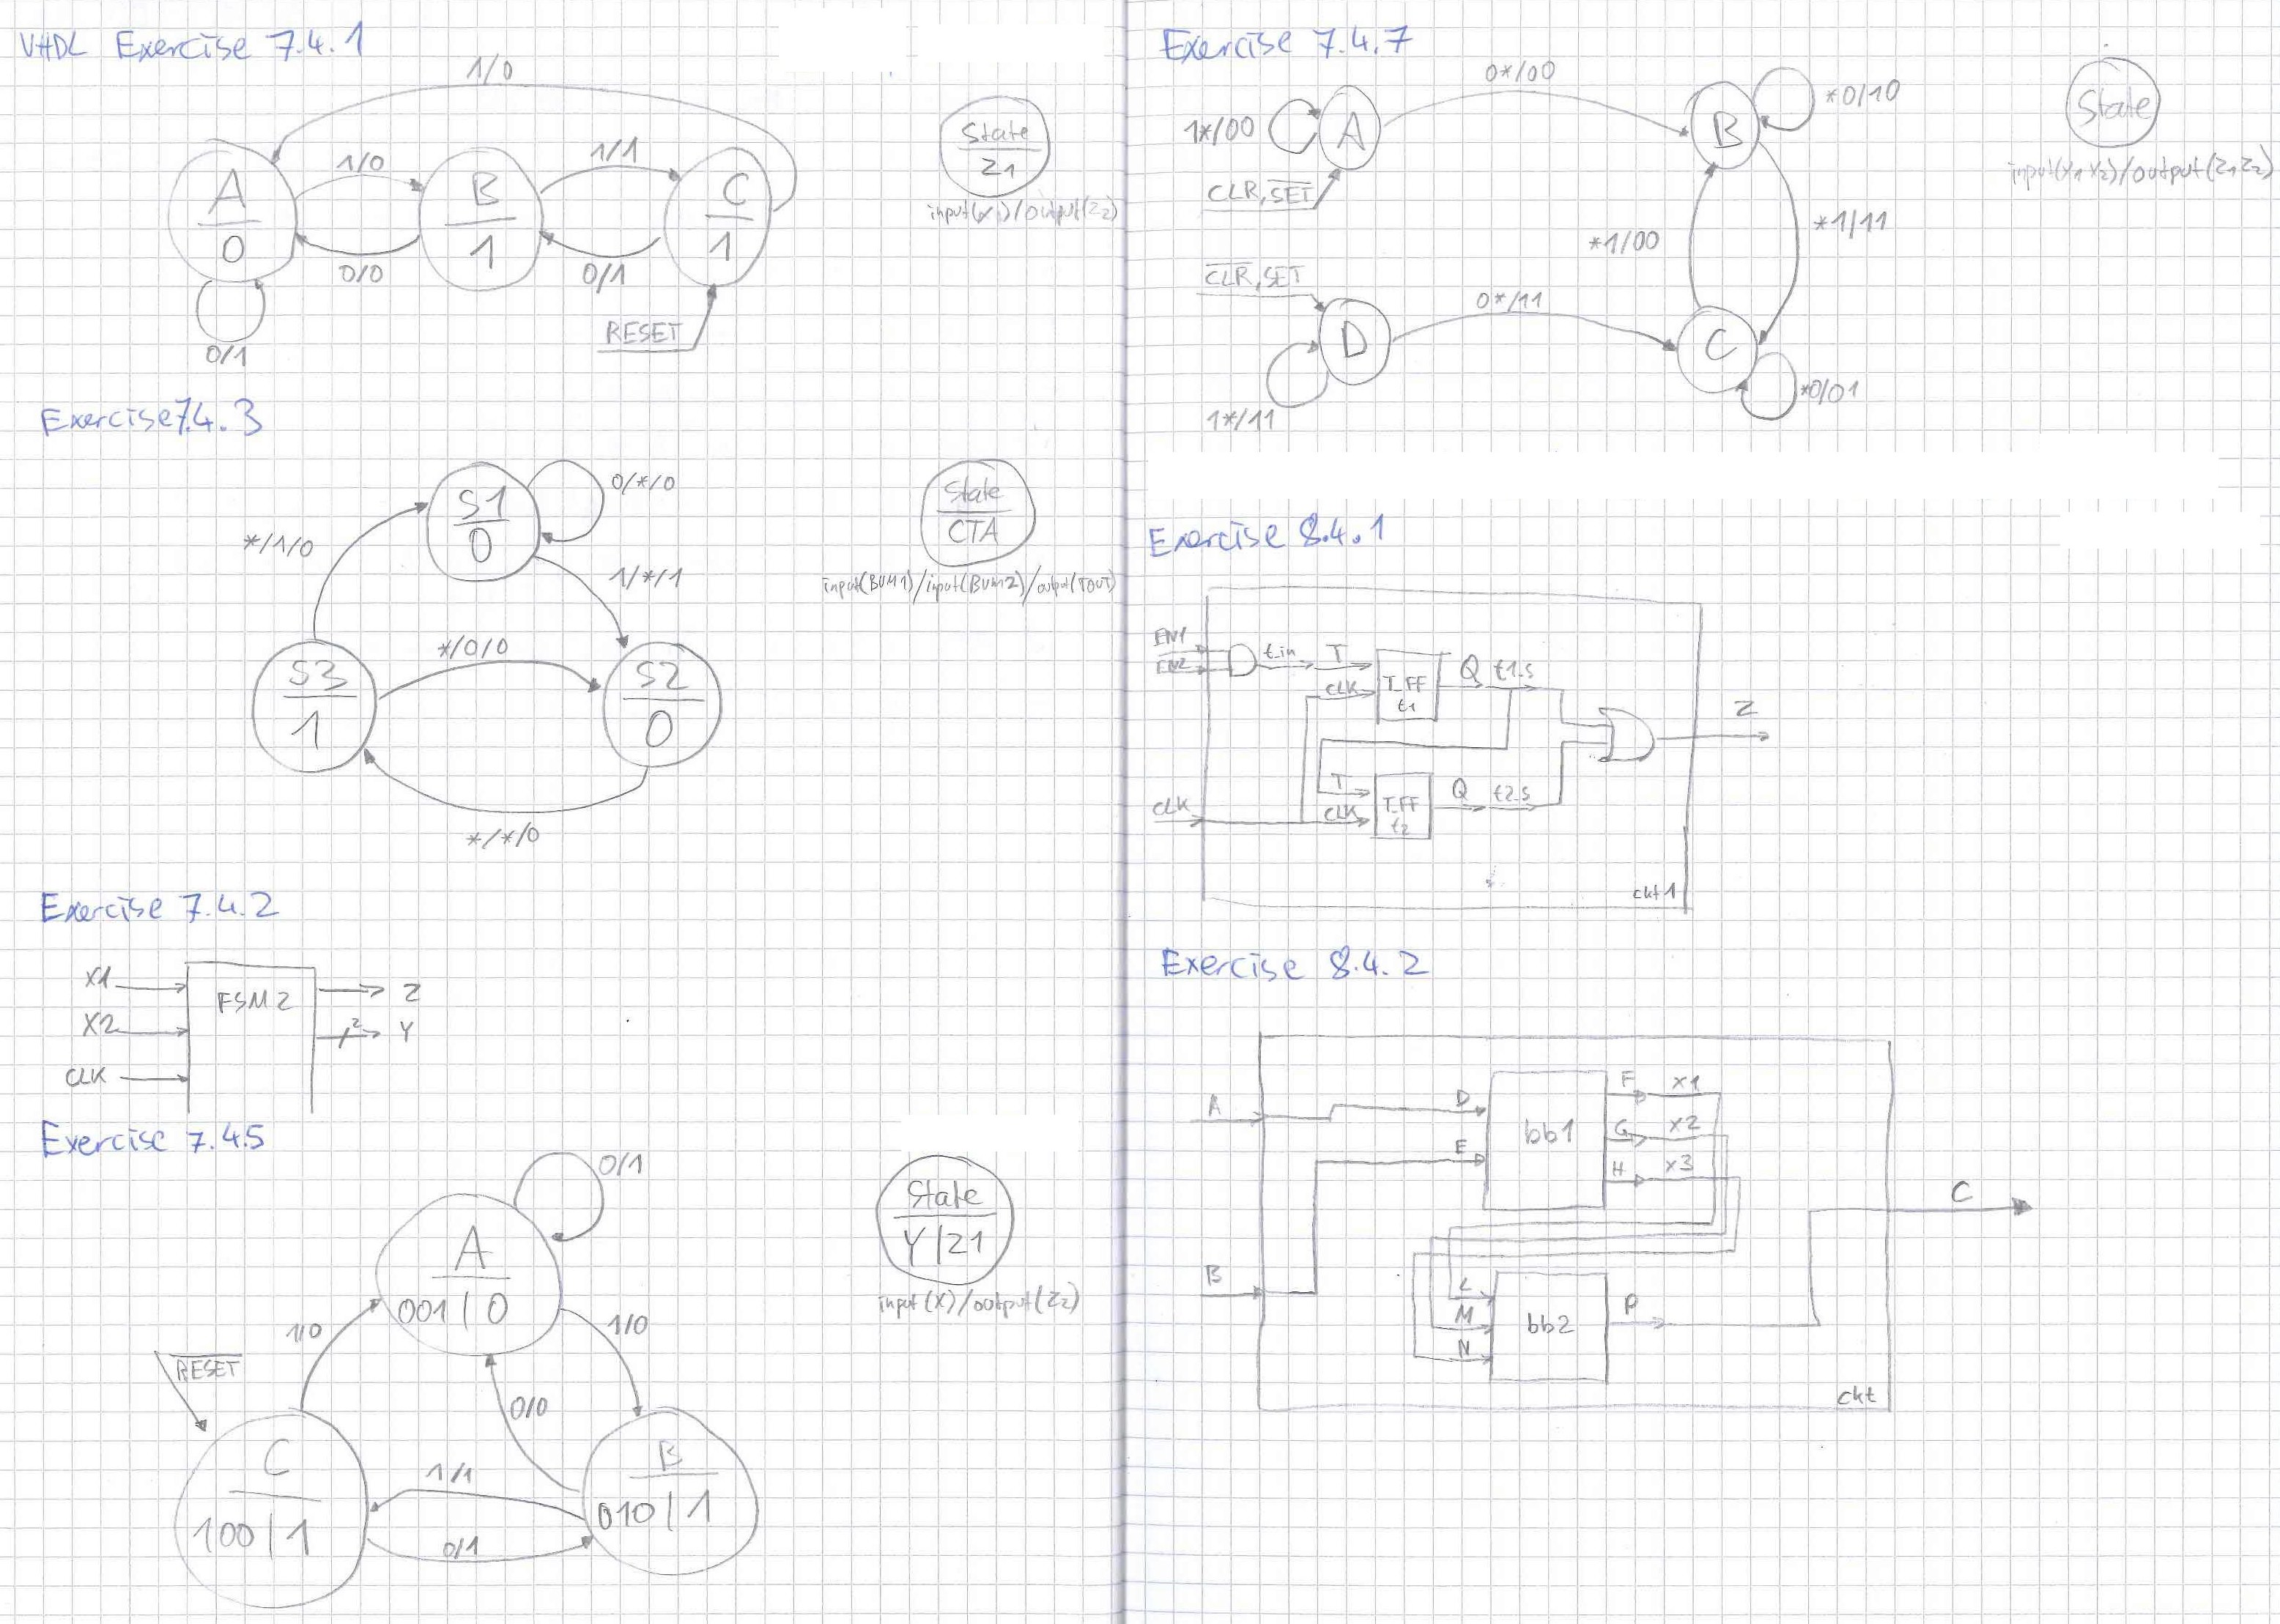 VHDL Exercise 7.4.1
1/0
A
0
1/0
B
1
1/1
C
1
0/0
0/1
0/1
RESET
State
Z1
input(X1)/output(Z2)
Exercise 7.4.3
S1
0
0/*/0
*/1/0
1/*/1
*/0/0
S3
1
S2
0
*/*/0
State
CTA
input(BUM1)/input(BUM2)/output(TOUT)
Exercise 7.4.2
X1
X2
CLK
FSM2
Z
2
Y
Exercise 7.4.5
0/1
A
001|0
1/0
1/0
RESET
0/0
C
100|1
1/1
0/1
B
010|1
State
Y|Z1
input(X)/output(Z2)
Exercise 7.4.7
1*/00
A
0*/00
B
*0/10
CLR,SET
*1/00
*1/11
CLR,SET
D
0*/11
C
*0/01
1*/11
State
input(X1X2)/output(Z1Z2)
Exercise 8.4.1
EN1
EN2
t_in
T
CLK
T_FF
t1
Q t1_s
Z
CLK
T
CLK
T_FF
t2
Q t2_s
ckt1
Exercise 8.4.2
A
D
E
bb1
F x1
G x2
H x3
C
B
L
M
N
bb2
P
ckt